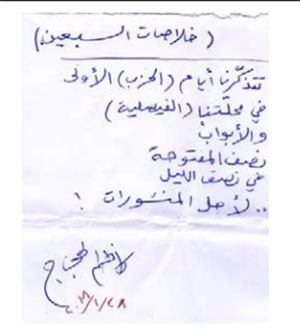 (خلاصات السبعين)
تتذكّرنا أيام (الحزب) الأولى
في محلّتنا (الفيصلية)
والأبوابْ
نصف المفتوحة
في نصف الليل
.. لأجل المنشورات !
كاظم الحجاج